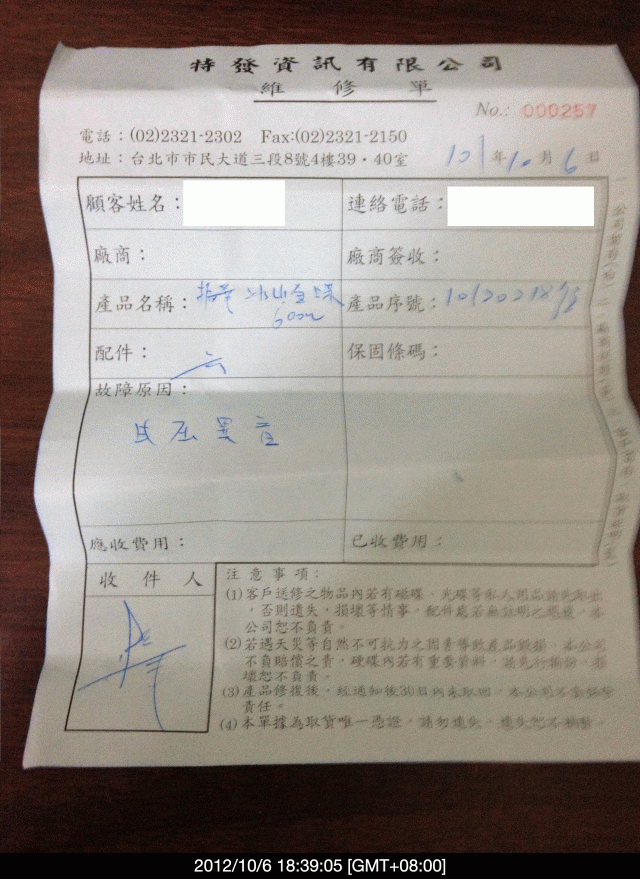 特發資訊有限公司
維修單
No.: 000257
電話：(02)2321-2302 Fax:(02)2321-2150
地址：台北市市民大道三段8號4樓39・40室
101年10月6日
顧客姓名：
連絡電話：
廠商：
廠商簽收：
產品名稱：振華 冰山金蝶
600w
產品序號：
配件：
保固條碼：
故障原因：
異音
應收費用：
已收費用：
收件人
注意事項：
(1)客戶送修之物品內若有磁碟、光碟等私人用品請先取出
，否則遺失，損壞等情事，配件處若無註明之憑證，本
公司恕不負責。
(2)若遇天災等自然不可抗力之因素導致產品毀損，本公司
不負賠償之責，硬碟內若有重要資料，請先行備份，損
壞恕不負責。
(3)產品修復後，經通知後30日內未取回，本公司不負保管
責任。
(4)本單據為取貨唯一憑證，請勿遺失，遺失恕不補發。
2012/10/6 18:39:05 [GMT+08:00]